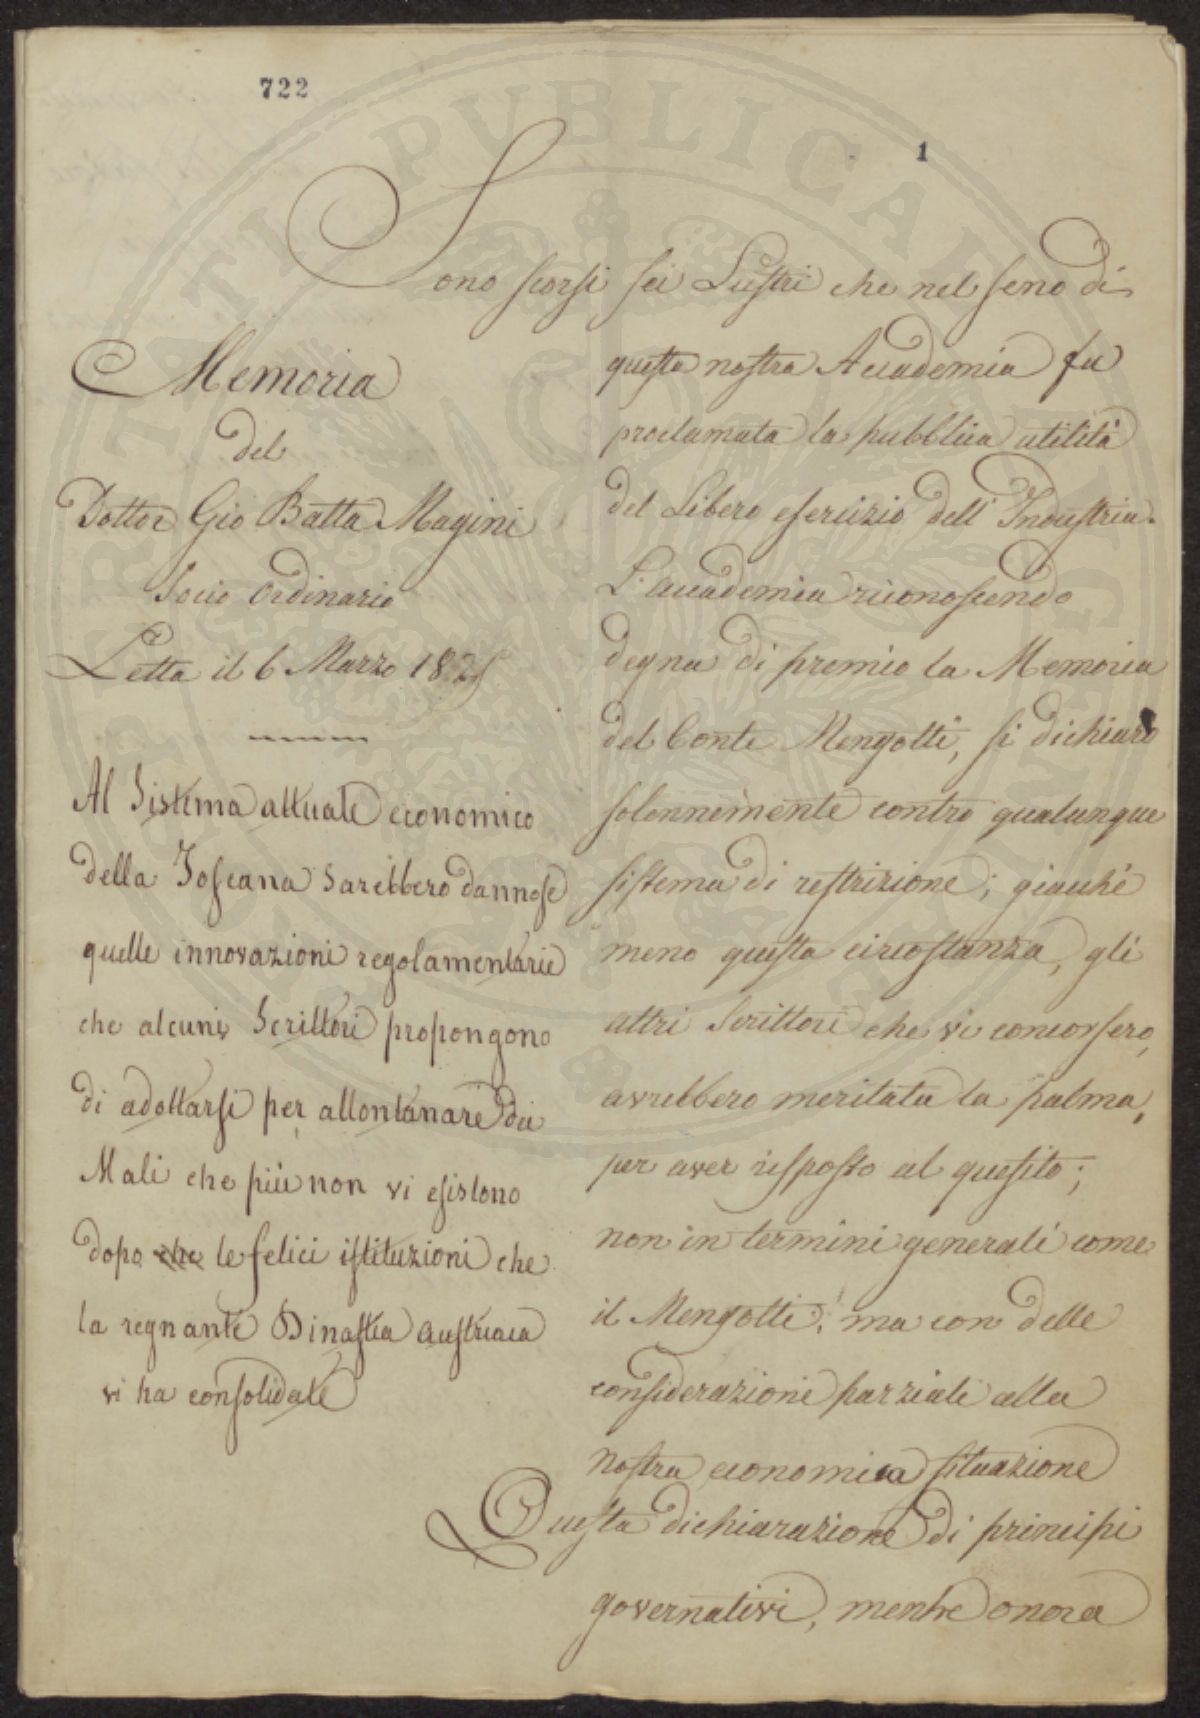 722
1
Memoria
del
Dottor Gio Batta Magini
Socio Ordinario
Letta il 6 Marzo 182
Al Sistema attuale economico
della Toscana Sarebbero dannose
quelle innovazioni regolamentarie
che alcuni Scrittori propongono
di adottarsi per allontanare dei
Mali che più non vi esistono
dopo che le felici istituzioni che
la regnante Dinastia austriaca
vi ha consolidate
Sono scorsi sei Lustri che nel seno di
questa nostra Accademia fu
proclamata la pubblica utilità
del Libero esercizio dell'Industria.
L'accademia riconoscendo
degna di premio la Memoria
del Conte Mengotti, si dichiarò
solennemente contro qualunque
sistema di restrizione; giacchè
meno questa circostanza, gli
altri Scrittori che vi concorsero,
avrebbero meritata la palma,
per aver risposto al quesito;
non in termini generali come
il Mengotti; ma con delle
considerazioni parziali alla
nostra economica situazione
Questa dichiarazione di principi
governativi, mentre onora
PUBLICAE